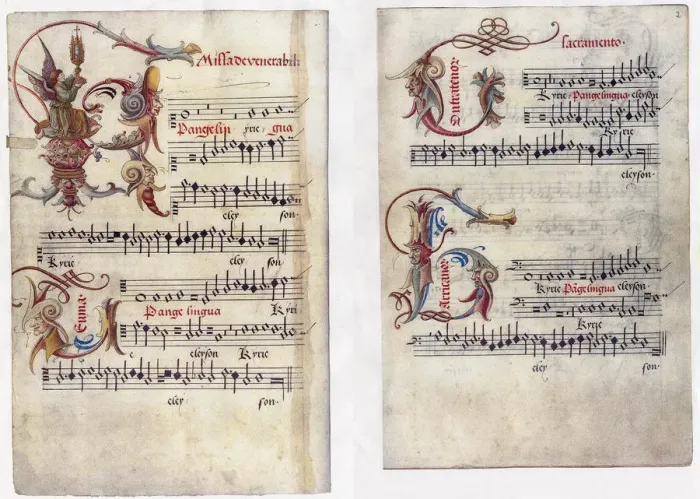 Missa de venerabili
Pange lin yrie gua
eley son.
Kyrie eley son.
Pange lingua Kyri
e eleyson Kyrie
eley son.
2
sacramento.
Contratenor
Kyrie Pangelingua eleyson
Kyrie
eleyson
Kyrie Pāgelingua eleyson.
Kyrie
eley son.